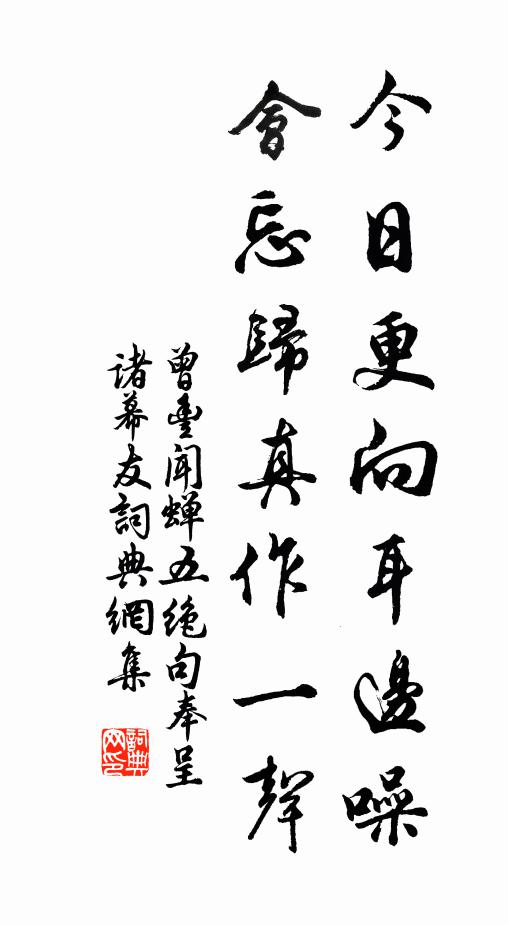 今日更向耳邊噪
會忘歸真作一聲
曾豐聞蟬五絶句奉呈
諸幕友詞典網集
詞典网印